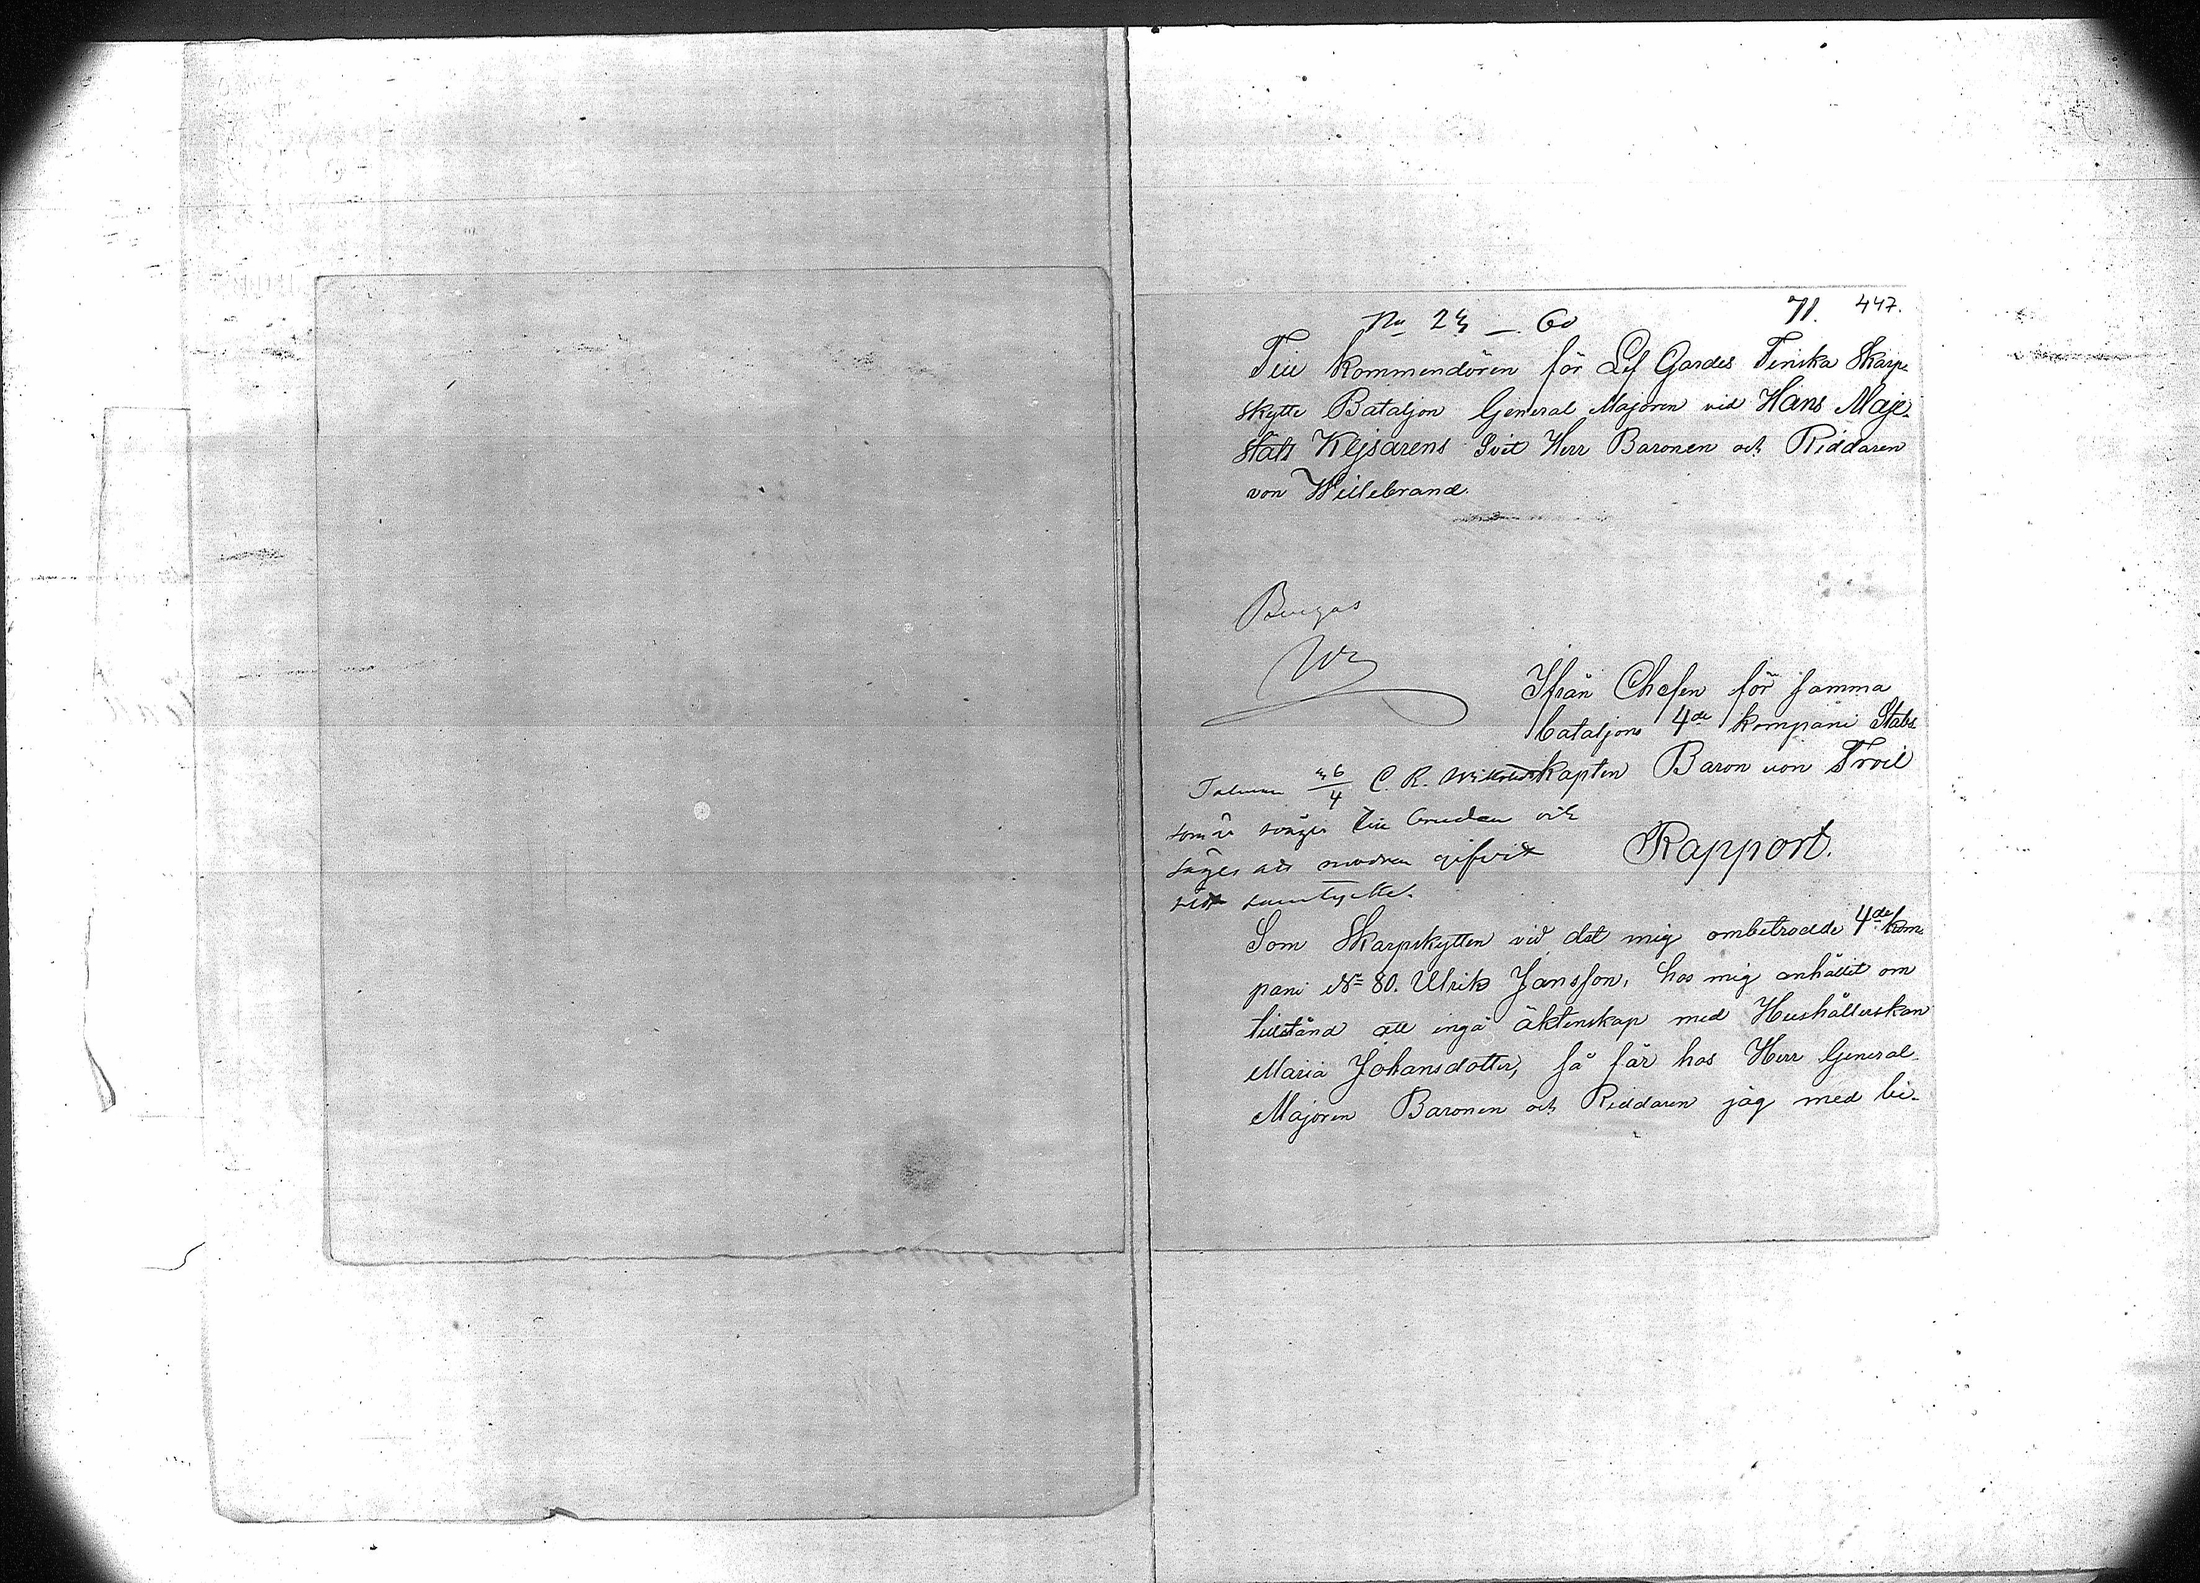 71. 447.
No 23 — 60
Till Kommendören för Lif Gardes Finska Skarp-
skytte Bataljon General Majoren vid Hans Maje-
stäts Kejsarens Svit Herr Baronen och Riddaren
von Willebrand.
Beviljas
Ifrån Chefen för samma
bataljons 4de kompani Stabs
kapten Baron von Troil
Rapport.
4 C. R.
som är svåger till bruden och
säger att modren gifvit
sitt samtycke.
Som Skarpskytten vid det mig ombetrodde 4de kom-
pani No 80. Ulrik Jansson, hos mig anhållit om
tillstånd att ingå äktenskap med Hushållerskan
Maria Johansdotter, så får hos Herr General-
Majoren Baronen och Riddaren jag med bi-